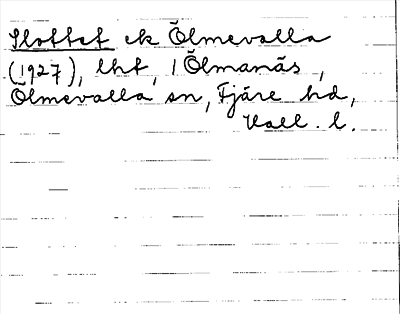 Slottet ek Ölmevalla
(1927), lht, 1 Ölmanäs,
Ölmevalla sn, Fjäre hd,
Hall. l.